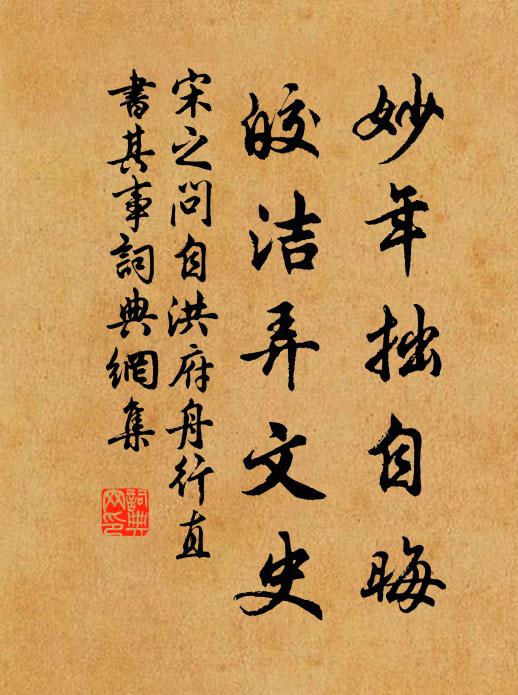 妙年拙自晦
皎洁弄文史
宋之问自洪府舟行直
書其事詞典網集
詞典网印